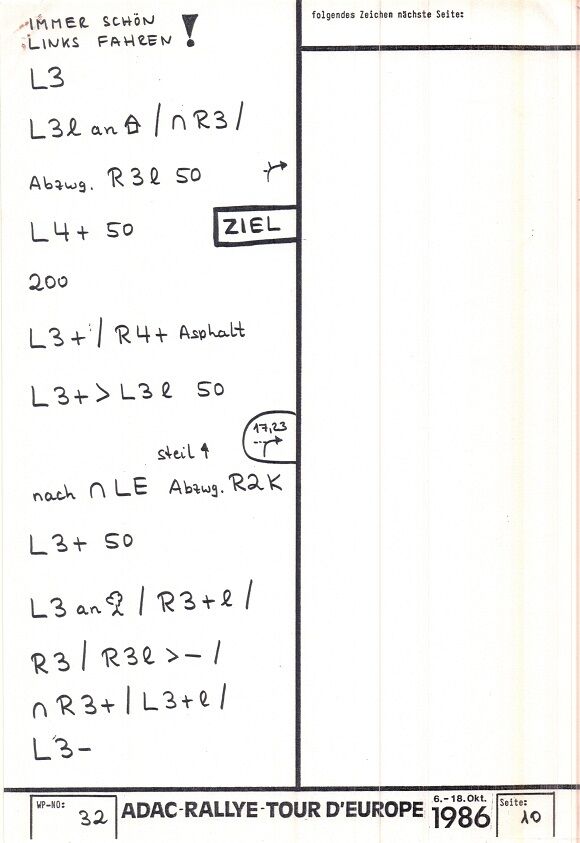 IMMER SCHÖN
LINKS FAHREN !
folgendes Zeichen nächste Seite:
L3
L3l an / ∩ R3 /
Abzwg. R3l 50
L4+ 50
ZIEL
200
L3+ / R4+ Asphalt
L3+ > L3l 50
17,23
steil
nach ∩ LE Abzwg. R2K
L3+ 50
L3 an / R3+l /
R3 / R3l > – /
∩ R3+ / L3+l /
L3–
WP-NO: 32
ADAC-RALLYE-TOUR D'EUROPE
6.-18.Okt.
1986
Seite: 10